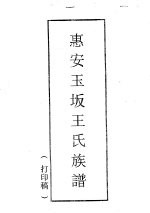 惠安玉坂王氏族譜
(打印稿)